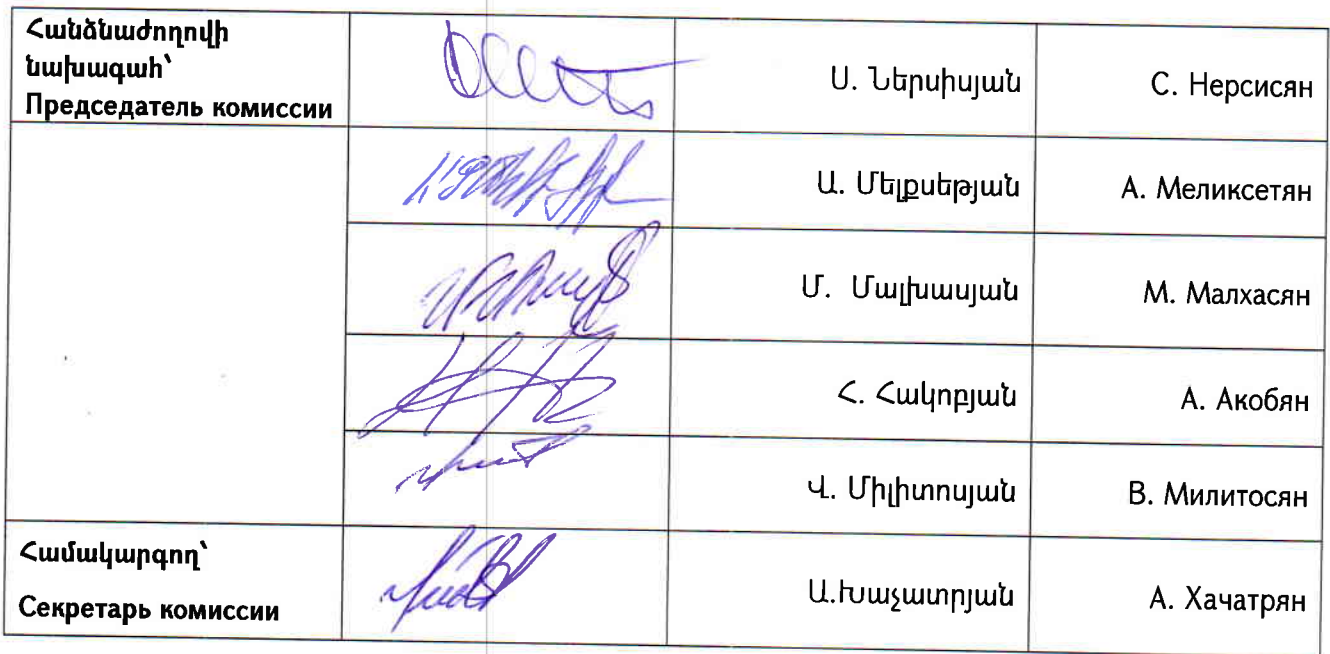 Հանձնաժողովի
նախագահ՝
Председатель комиссии
Ս. Ներսիսյան
С. Нерсисян
Ա. Մելքսեթյան
А. Меликсетян
Մ. Մալխասյան
М. Малхасян
Հ. Հակոբյան
А. Акобян
Վ. Միլիտոսյան
В. Милитосян
Համակարգող՝
Секретарь комиссии
Ա.Խաչատրյան
А. Хачатрян